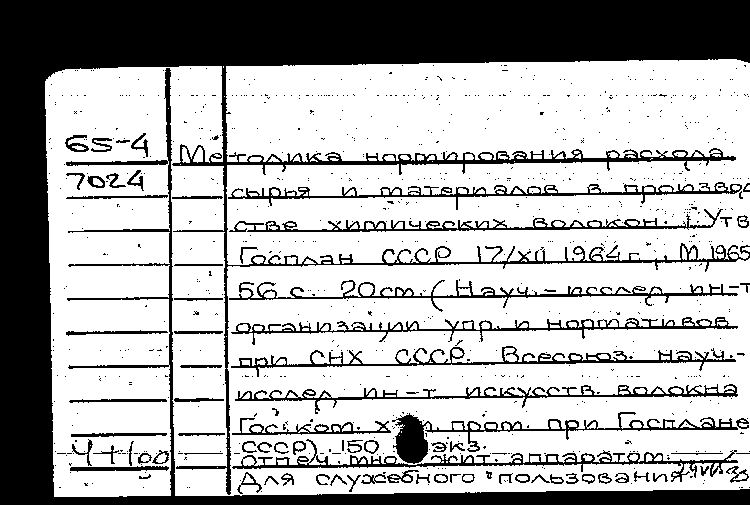 65-4 Методика нормирования расхода
7024 сырья и материалов в производ
стве химических волокон. [Утв
Госплан СССР 17/XII 1964 г., М, 1965
56 с. 20 см. (Науч.-исслед, ин-т
организации упр. и нормативов
при СНХ СССР. Всесоюз. науч.-
исслед, ин-т искусств. волокна
Гос. ком. пром. при Госплане
СССР). 150 экз.
отпеч. аппаратом.
Для служебного пользования